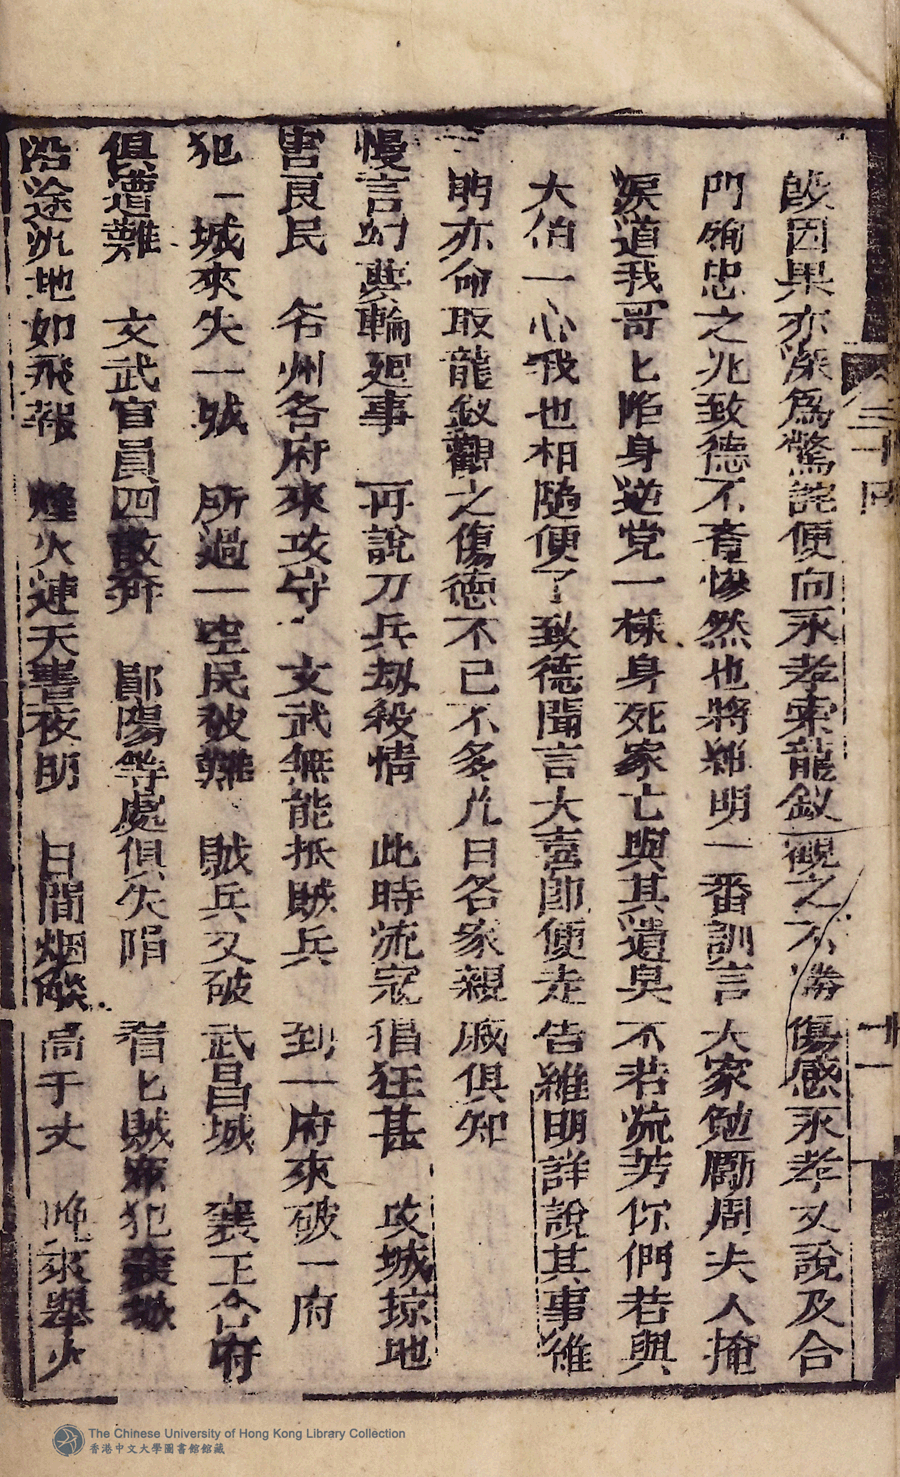 段因果亦深為驚詫便向永孝索龍釵一觀之不勝傷感永孝又說及合
門殉忠之兆致德不竟慘然也將維明一番訓言大家勉勵周夫人掩
淚道我哥匕陷身逆党一樣身死家亡與其遺臭不若流芳你們若與
大伯一心我也相隨便了致德聞言大喜即便走告維明詳說其事維
明亦命取龍釵觀之傷德不已不多几日各家親戚俱知
慢言幻異輪廻事 再說刀兵劫殺情 此時流寇猖狂甚 攻城掠地
害良民 各州各府來攻守 文武無能抵賊兵 到一府來破一府
犯一城來失一城 所過一空民被難 賊兵又破武昌城 襄王合府
俱遭難 文武官員四散奔 鄖陽等處俱失陷 看匕賊來犯襄城
沿途汛地如飛報 烽火連天晝夜明 日間烟燄高于丈 晚來舉火
三十回
十一
The Chinese University of Hong Kong Library Collection
香港中文大學圖書館館藏